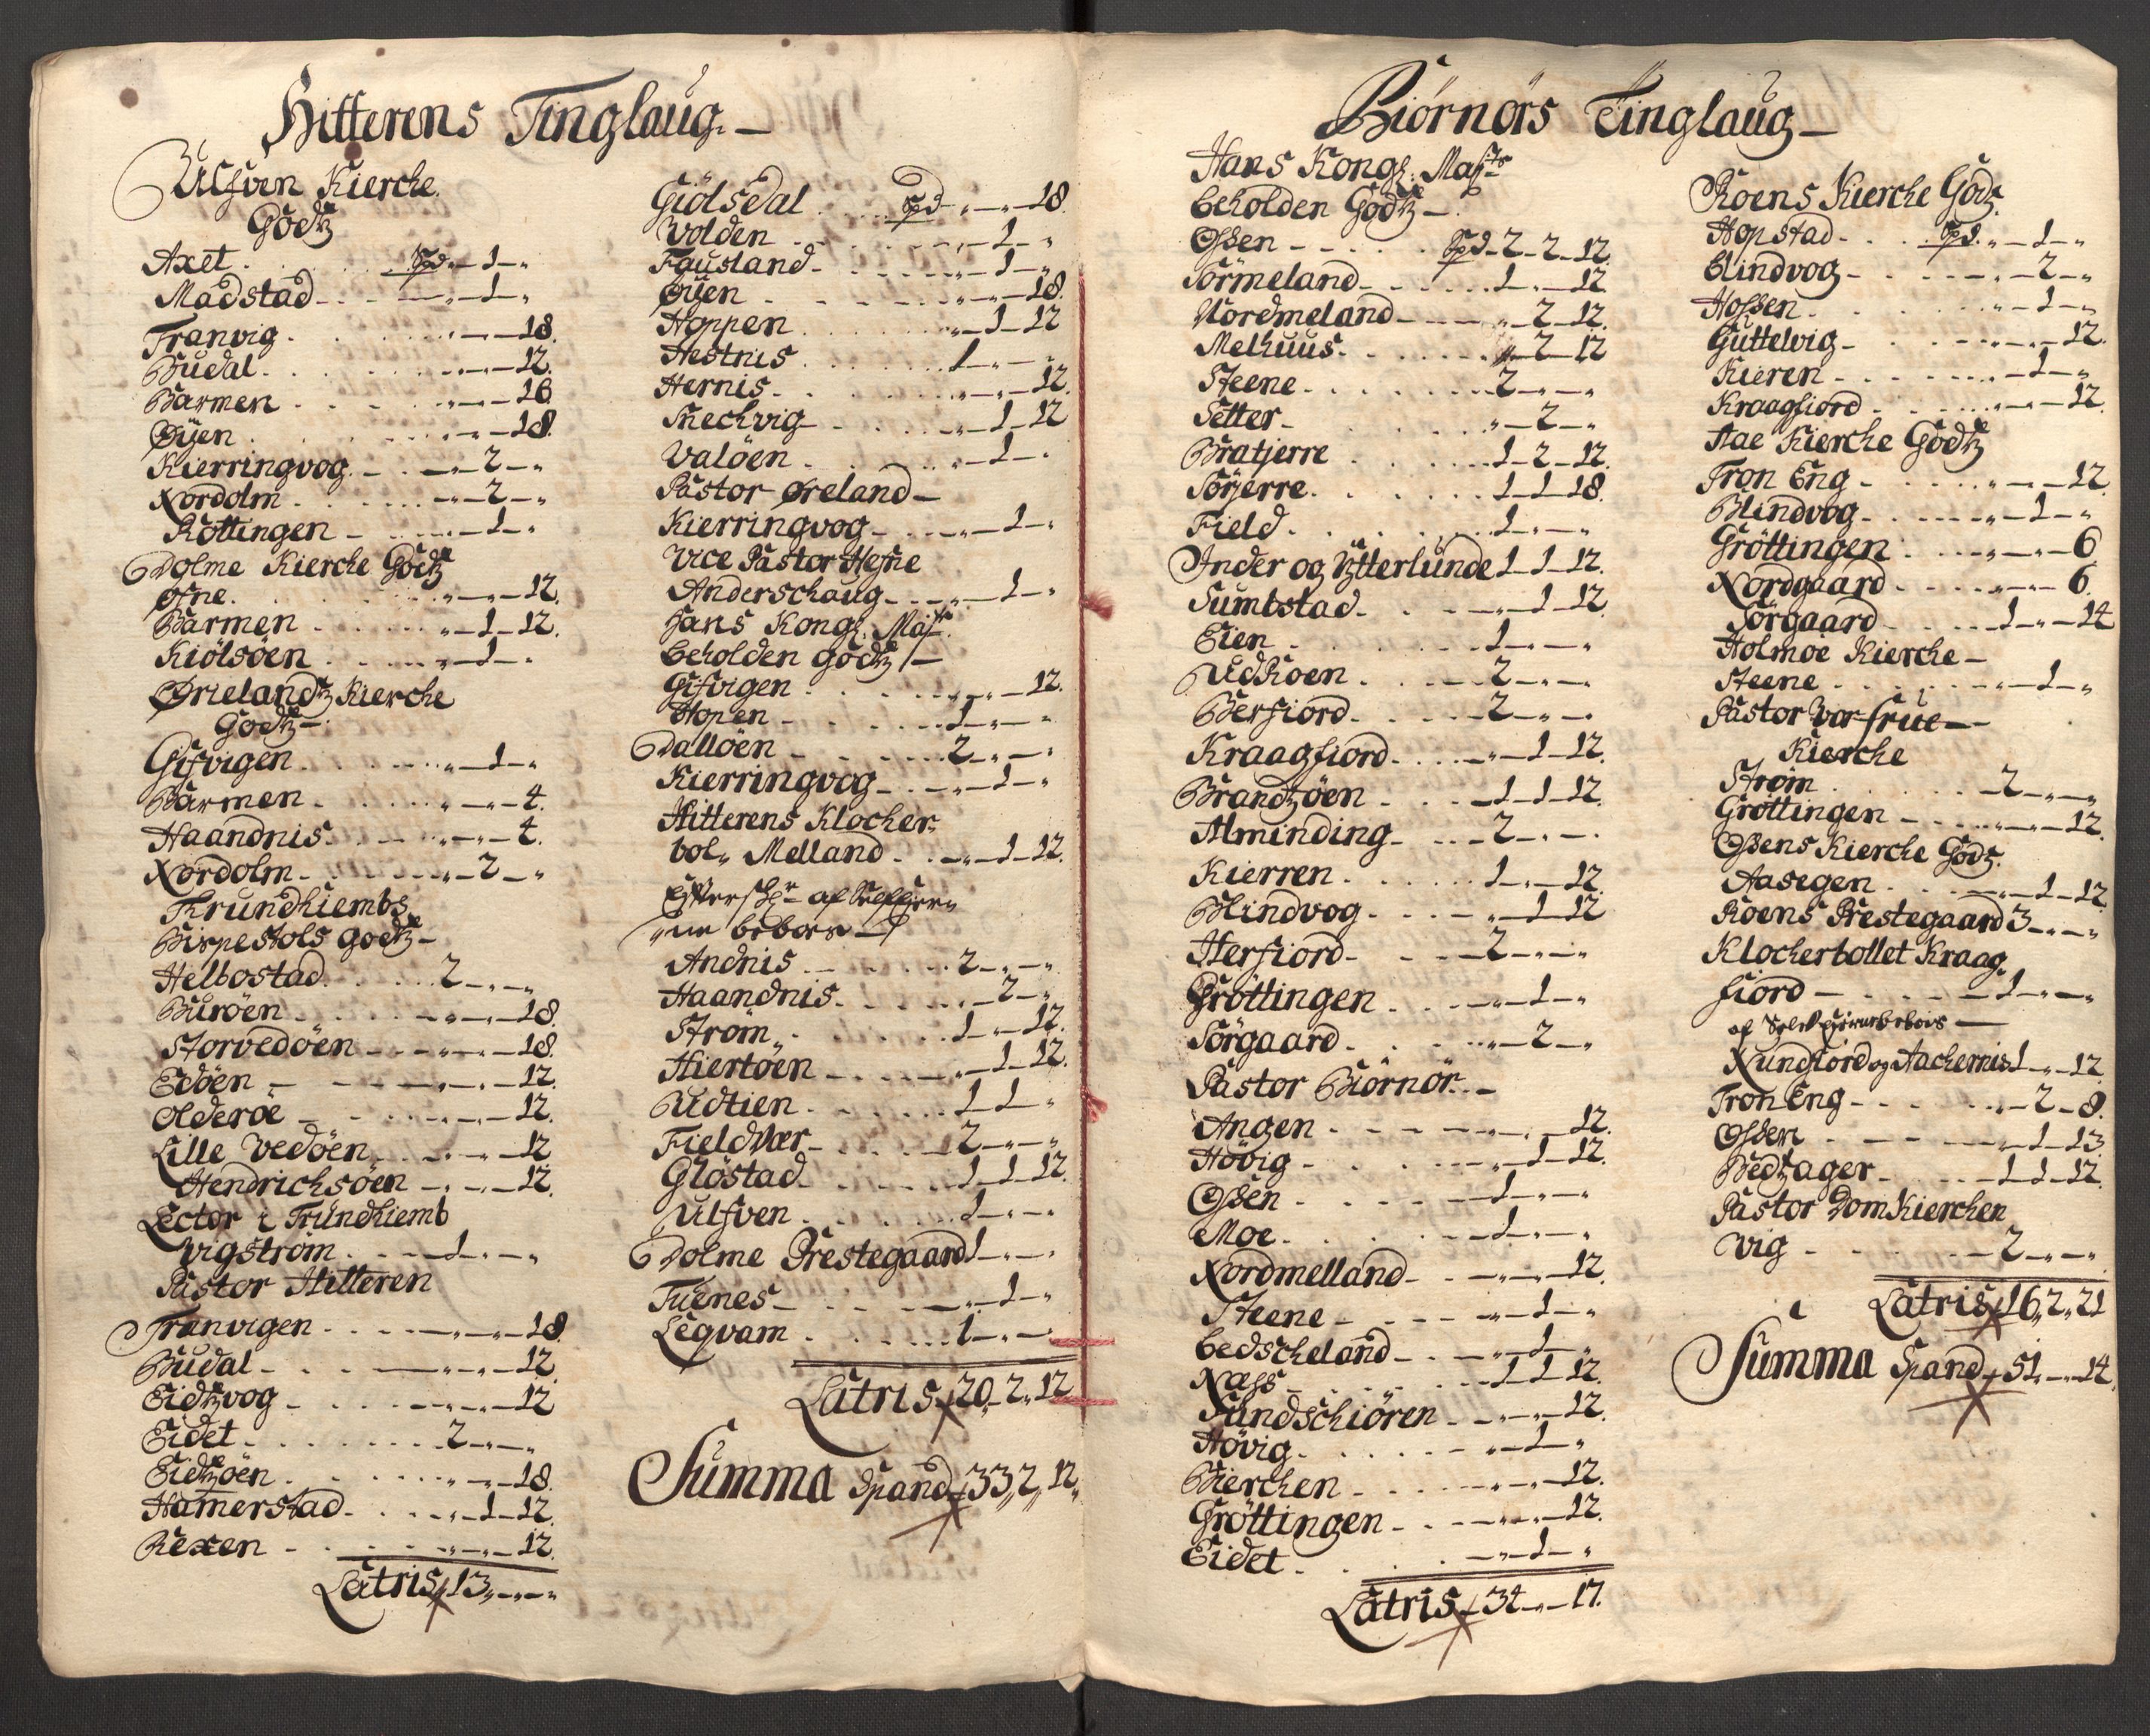 Hitterens Tinglaug. —
Ulfven Kierche
Godtz
Axet . . . Spd „ — 1 — „
Madstad - - - — „ — 1 — „
Tranvig . . . „ — „ — 18.
Budal . . . „ — „ — 12.
Barmen . . . „ — „ — 16
Øyen . . . „ — „ — 18.
Kierringvog . — „ — 2 — „
Nordolm . . . „ — 2 — „
Rottingen — . . . „ — 1 — „
Dolme Kierche Godtz
Ofne . . . „ — „ — 12.
Barmen . . . „ — 1 — 12.
Kiölsöen . . . „ — 1 — „
Ørielandtz Kierche
Godtz —
Gifvigen . . . „ — 1 — „
Barmen . . . „ — „ — 4.
Haandnis . . . „ — „ — 4.
Nordolm . . . „ — 2 — „
Thrundhiembs
Bispestols godtz —
Helbostad . . . 2 — „ — „
Buröen . . . „ — „ — 18.
Storvedöen - - - „ — „ — 18.
Edöen - - - „ — „ — 12.
Olderöe — . . . „ — „ — 12.
Lille Vedöen . . . „ — „ — 12
Hendrichsöen — „ — „ — 12.
Lector i Trundhiemb
Vigström . . . — 1 — „ — „
Pastor Hitteren
Tranvigen . . . — „ — „ — 18.
Budal - . . . — „ — „ — 12.
Eidtzvog . . . „ — „ — 12
Eidet . . . 2 — „ — „
Eidtzöen . . . „ — „ — 18.
Hamerstad . . . „ — 1 — 12.
Rexen - . . . „ — „ — 12.
Latris 13 „ — „ — „
Giölsdal . . . Spd „ — „ — 18.
Volden . . . „ — 1 — „
Fausland . . . „ — 1 — „
Øyen . . . „ — „ — 18.
Hoppen . . . „ — 1 — 12
Hestnis . . . 1 — „ — „
Hernis . . . „ — „ — 12.
Snechvig . . . „ — 1 — 12
Valöen . . . „ — 1 — „
Pastor Øreland —
Kierringvog - . . . „ — 1 — „
Vice Pastor Hefne
Anderschaug - . . „ — 1 — „
Hans Kongl. Mayts.
beholden godtz /—
Gifvigen . . . „ — „ — 12.
Hopen - . . . 1 — „ — „
Dallöen - . . . 2 — „ — „
Kierringvog - . . — „ — 1 — „
Hitterens Klocher„
bol„ Melland - . . „ — 1 — 12.
af
Andnis . . . 2 — „ — „
Haandnis . . . „ — 2 — „
Ström „ . . . 1 — „ — 12.
Hiertöen - . . . „ — 1 — 12.
Udtien . . . 1 — 1 — „
Fieldvær - . . . 2 — „ — „
Glöstad . . . 1 — 1 — 12.
Ulfven . . . 1 — „ — „
Dolme Prestegaard 1 — „ — „
Tuenes - . . . „ — 1 — „
Leqvam . . . 1 — „ — „
Latris 20 „ 2 „ 12
Summa Spand 33 „ 2 „ 12 „
Biörnörs Tinglaug —
Hans Kongl. Mayts
beholden Godtz —
Ofsen - - . . . Spd - 2 — 2 — 12.
Sörmeland - . . . 1 — „ — 12.
Nordmeland - — „ — 2 — 12.
Melhuus . . . „ — 2 — 12
Steene . . . 2 — „ — „
Setter - . . . „ — 2 — „
Bratjerre . . . 1 — 2 — 12.
Sörjerre . . . 1 — 1 — 18.
Field . . . 1 — „ — „
Inder og Ytterlunde 1 — 1 — 12.
Sumbstad . . . — „ — 1 — 12.
Eien - . . . 1 — „ — „
Udroen . . . 2 — „ — „
Berfiord . . . 2 — „ — „
Kraagfiord . . . „ — 1 — 12.
Brandtzöen . . . 1 — 1 — 12.
Alminding - . . . 2 — „ — „
Kierren . . . 1 — „ — 12.
Blindvog . . . „ — 1 — 12
Herfiord - . . . 2 — „ — „
Gröttingen . . . — „ — 1 — „
Sörgaard . . . „ — 2 — „
Pastor Biörnör . —
Angen - - - — „ — „ — 12.
Hövig - . . . „ — 1 — 12.
Ofsen . . . — 1 — „ — „
Moe . . . — 1 — „ — „
Nordmelland - . — „ — „ — 12.
Steene - - - — „ — 1 — „
Bedscheland - . — „ — 1 — „
Næss - . . . 1 — 1 — 12.
Sundschiören - . — „ — „ — 12.
Hövig . . . — „ — 1 — „
Bierchen - . . . — „ — „ — 12.
Gröttingen - . — „ — „ — 12.
Eidet . . . — „ — 1 — „
Latris 34 — „ — 17.
Roens Kierche Godtz.
Hopstad - . . Spd. „ — 1 — „
Blindvog - . . . „ — 2 — „
Hofsen . . . „ — 1 — „
Guttelvig - . . . „ — „ — 12.
Kieren - . . . „ — 1 — „
Kraagfiord . . . „ — „ — 12.
Aae Kierche Godtz
Tron Eng - . . . „ — „ — 12.
Blindvog - . . . „ — 1 — „
Gröttingen . . . „ — „ — 6
Nordgaard . . . „ — „ — 6.
Sörgaard . . . 1 — „ — 14
Holmöe Kierche —
Steene . . . „ — 1 — „
Pastor Vor frue —
Kierche
Ström . . . — 2 — „ — „
Grottingen - . . . „ — „ — 12.
Ofsens Kierche Godtz.
Aasegen . . . — „ — 1 — 12.
Roens Prestegaard 3 — „ — „
Klocherbollet Kraag„
fiord — . . . — 1 — „ — „
af Selv —
Nundfiord og Aachernis 1 „ — 12
Tron Eng - . . . „ — 2 — 8.
Ofsen . - - — „ — 1 — 13.
Bedtzager - . . . 1 — 1 — 12.
Pastor Domkierchen
Vig - . . . — 2 — „ — „
Latris 16 „ 2 „ 21
Summa Spand 51 „ — „ 14.